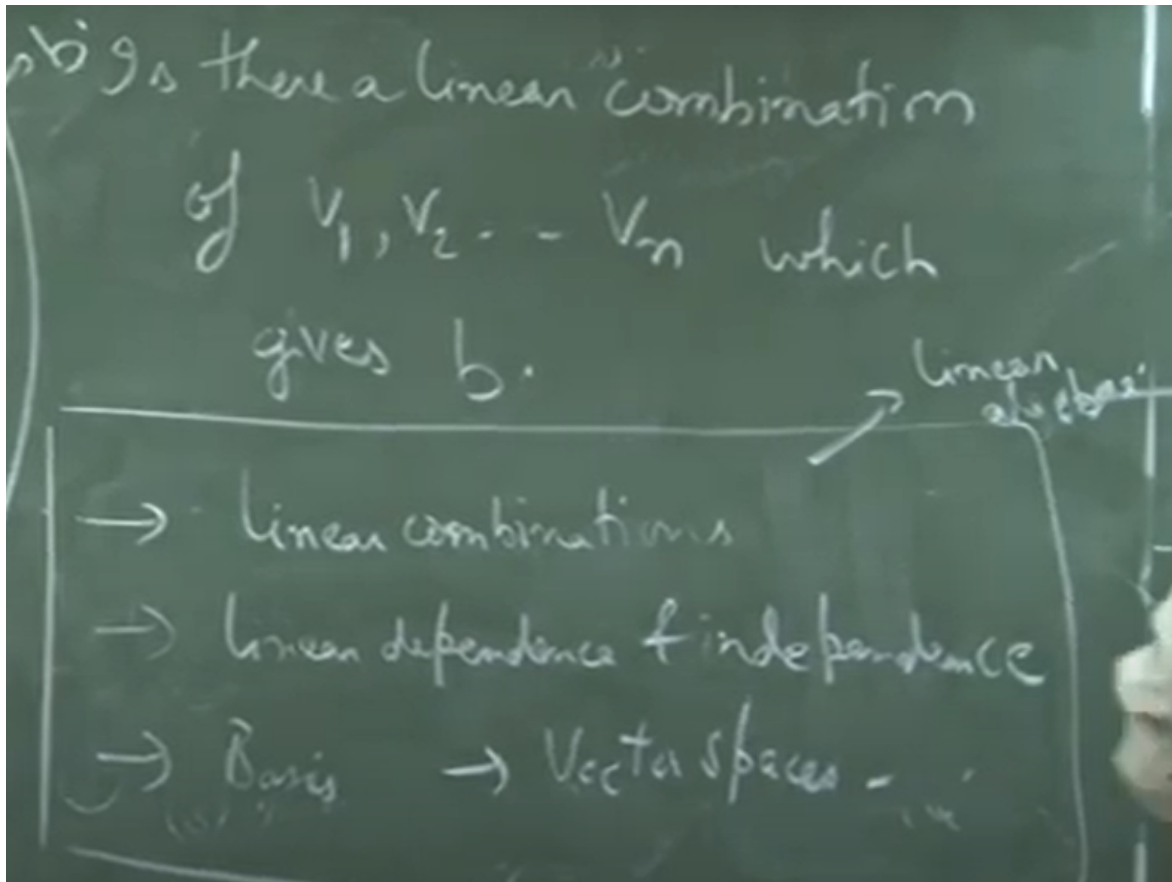 b Is there a linear combination
of V1, V2 - - - Vn which
gives b.
linear
algebra
→ linear combinations
→ linear dependence & independence
→ Basis → Vector spaces -